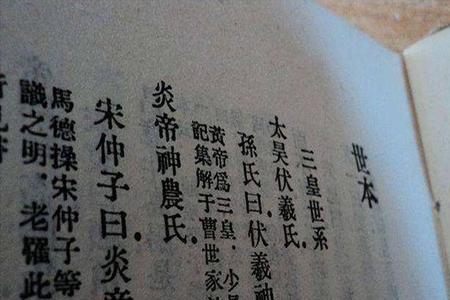 世本
三皇世系
太昊伏羲氏.
孫氏曰.伏羲神
黃帝爲三皇.少昊
記集解于曹世家
炎帝神農氏.
宋仲子曰.炎帝
馬德操宋仲子等
識之明.老羅此